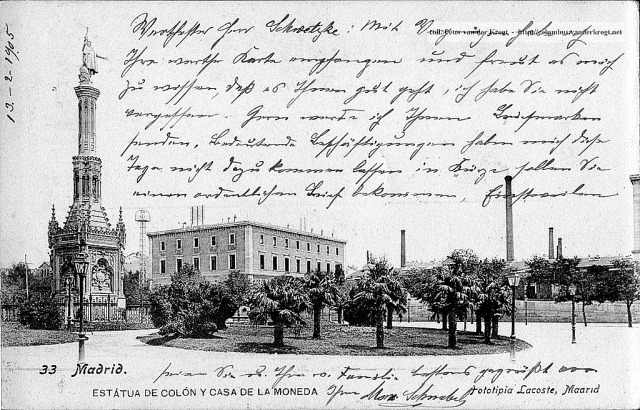 13.-2-1905
Coll. Peter van der Krogt - http://columbus.vanderkrogt.net
Werthester Herr Schwetzke: Mit Vergnügen habe ich
Ihre werthe Karte empfangen und freut es mich
zu wissen, daß es Ihnen gut geht, ich habe Sie nicht
vergessen. Gern werde ich Ihnen Briefmarken
senden, Bedeutende Beschäftigungen haben mich diese
Tage nicht dazu kommen lassen in Kürze sollen Sie
einen ordentlichen Brief bekommen, Einstweilen
seien Sie u. Ihre w. Familie bestens gegrüßt von
33 Madrid.
ESTÁTUA DE COLÓN Y CASA DE LA MONEDA
Ihrem Max
Fototipia Lacoste, Madrid